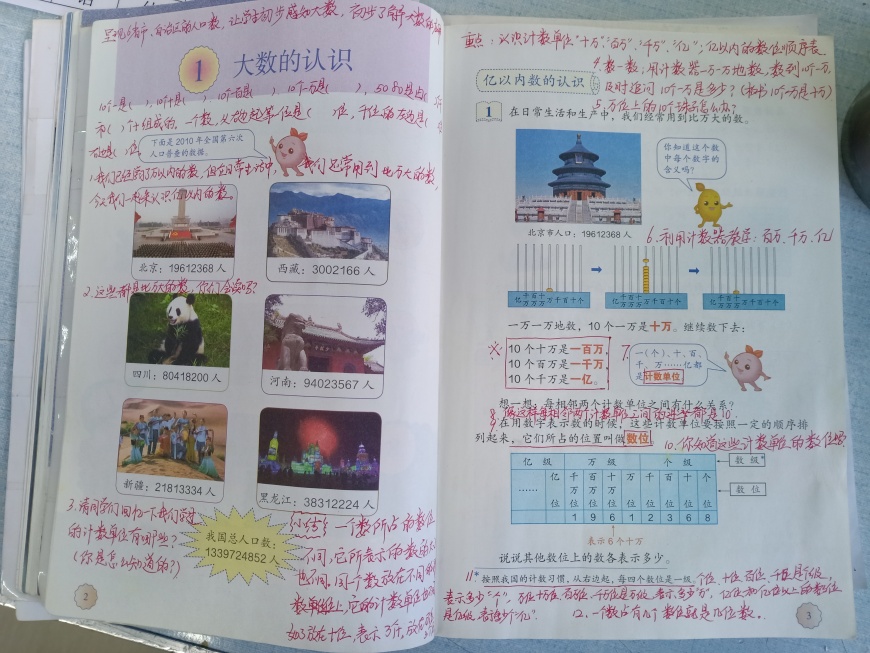 呈现各省市、自治区的人口数，让学生初步感知大数，初步了解大数的
1 大数的认识
10个一是( )，10个十是( )，10个一百是( )，10个一千是( )，5080是由(
下面是2010年全国第六次
人口普查的数据。
1.我们已经学习了万以内的数，但在日常生活中，我们还常用到比万大的数，
今天我们一起来认识亿以内的数。
北京：19612368人
西藏：3002166人
2.这些都是比万大的数，你们会读吗？
四川：80418200人
河南：94023567人
新疆：21813334人
黑龙江：38312224人
3.请同学们回忆一下我们学过
的计数单位有哪些？
(你是怎么知道的？)
我国总人口数：
1339724852人
小结：一个数所占的数位
不同，它所表示的数的大小
也不同，同一个数放在不同的
数位上，它的计数单位也不同
如3放在十位，表示3个十，放在
2
重点：认识计数单位“十万”“百万”、“千万”、“亿”；亿以内的数位顺序表
4.数一数，用计数器一万一万地数，数到10个一万，
亿以内数的认识
及时追问10个一万是多少？(板书10个一万是十万)
5.万位上的10个珠子怎么办？
1 在日常生活和生产中，我们经常用到比万大的数。
你知道这个数
中每个数字的
含义吗？
北京市人口：19612368人
6.利用计数器教学：百万、千万、亿
亿千百十万千百十个
万万万
亿千百十万千百十个
万万万
亿千百十万千百十个
万万万
一万一万地数，10个一万是十万。继续数下去：
10个十万是一百万，
10个百万是一千万，
10个千万是一亿。
7.
一(个)、十、百、
千、万……亿都
是计数单位
想一想：每相邻两个计数单位之间有什么关系？
8.像这样每相邻两个计数单位之间的进率都是10.
9.在用数字表示数的时候，这些计数单位要按照一定的顺序排
列起来，它们所占的位置叫做数位
10.你知道这些计数单位的数位吗
亿级 万级 个级
数级*
…… 亿位 千万位 百万位 十万位 万位 千位 百位 十位 个位
数位
1 9 6 1 2 3 6 8
表示6个十万
说说其他数位上的数各表示多少。
11* 按照我国的计数习惯，从右边起，每四个数位是一级。个位、十位、百位、千位是个级，
表示多少个“一”，万位、十万位、百万位、千万位是万级，表示多少个“万”，亿位和亿位以上的数位
是亿级，表示多少个“亿”。 12.一个数占有几个数位就是几位数。
3